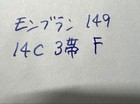 モンブラン 149
14C 3帯 F